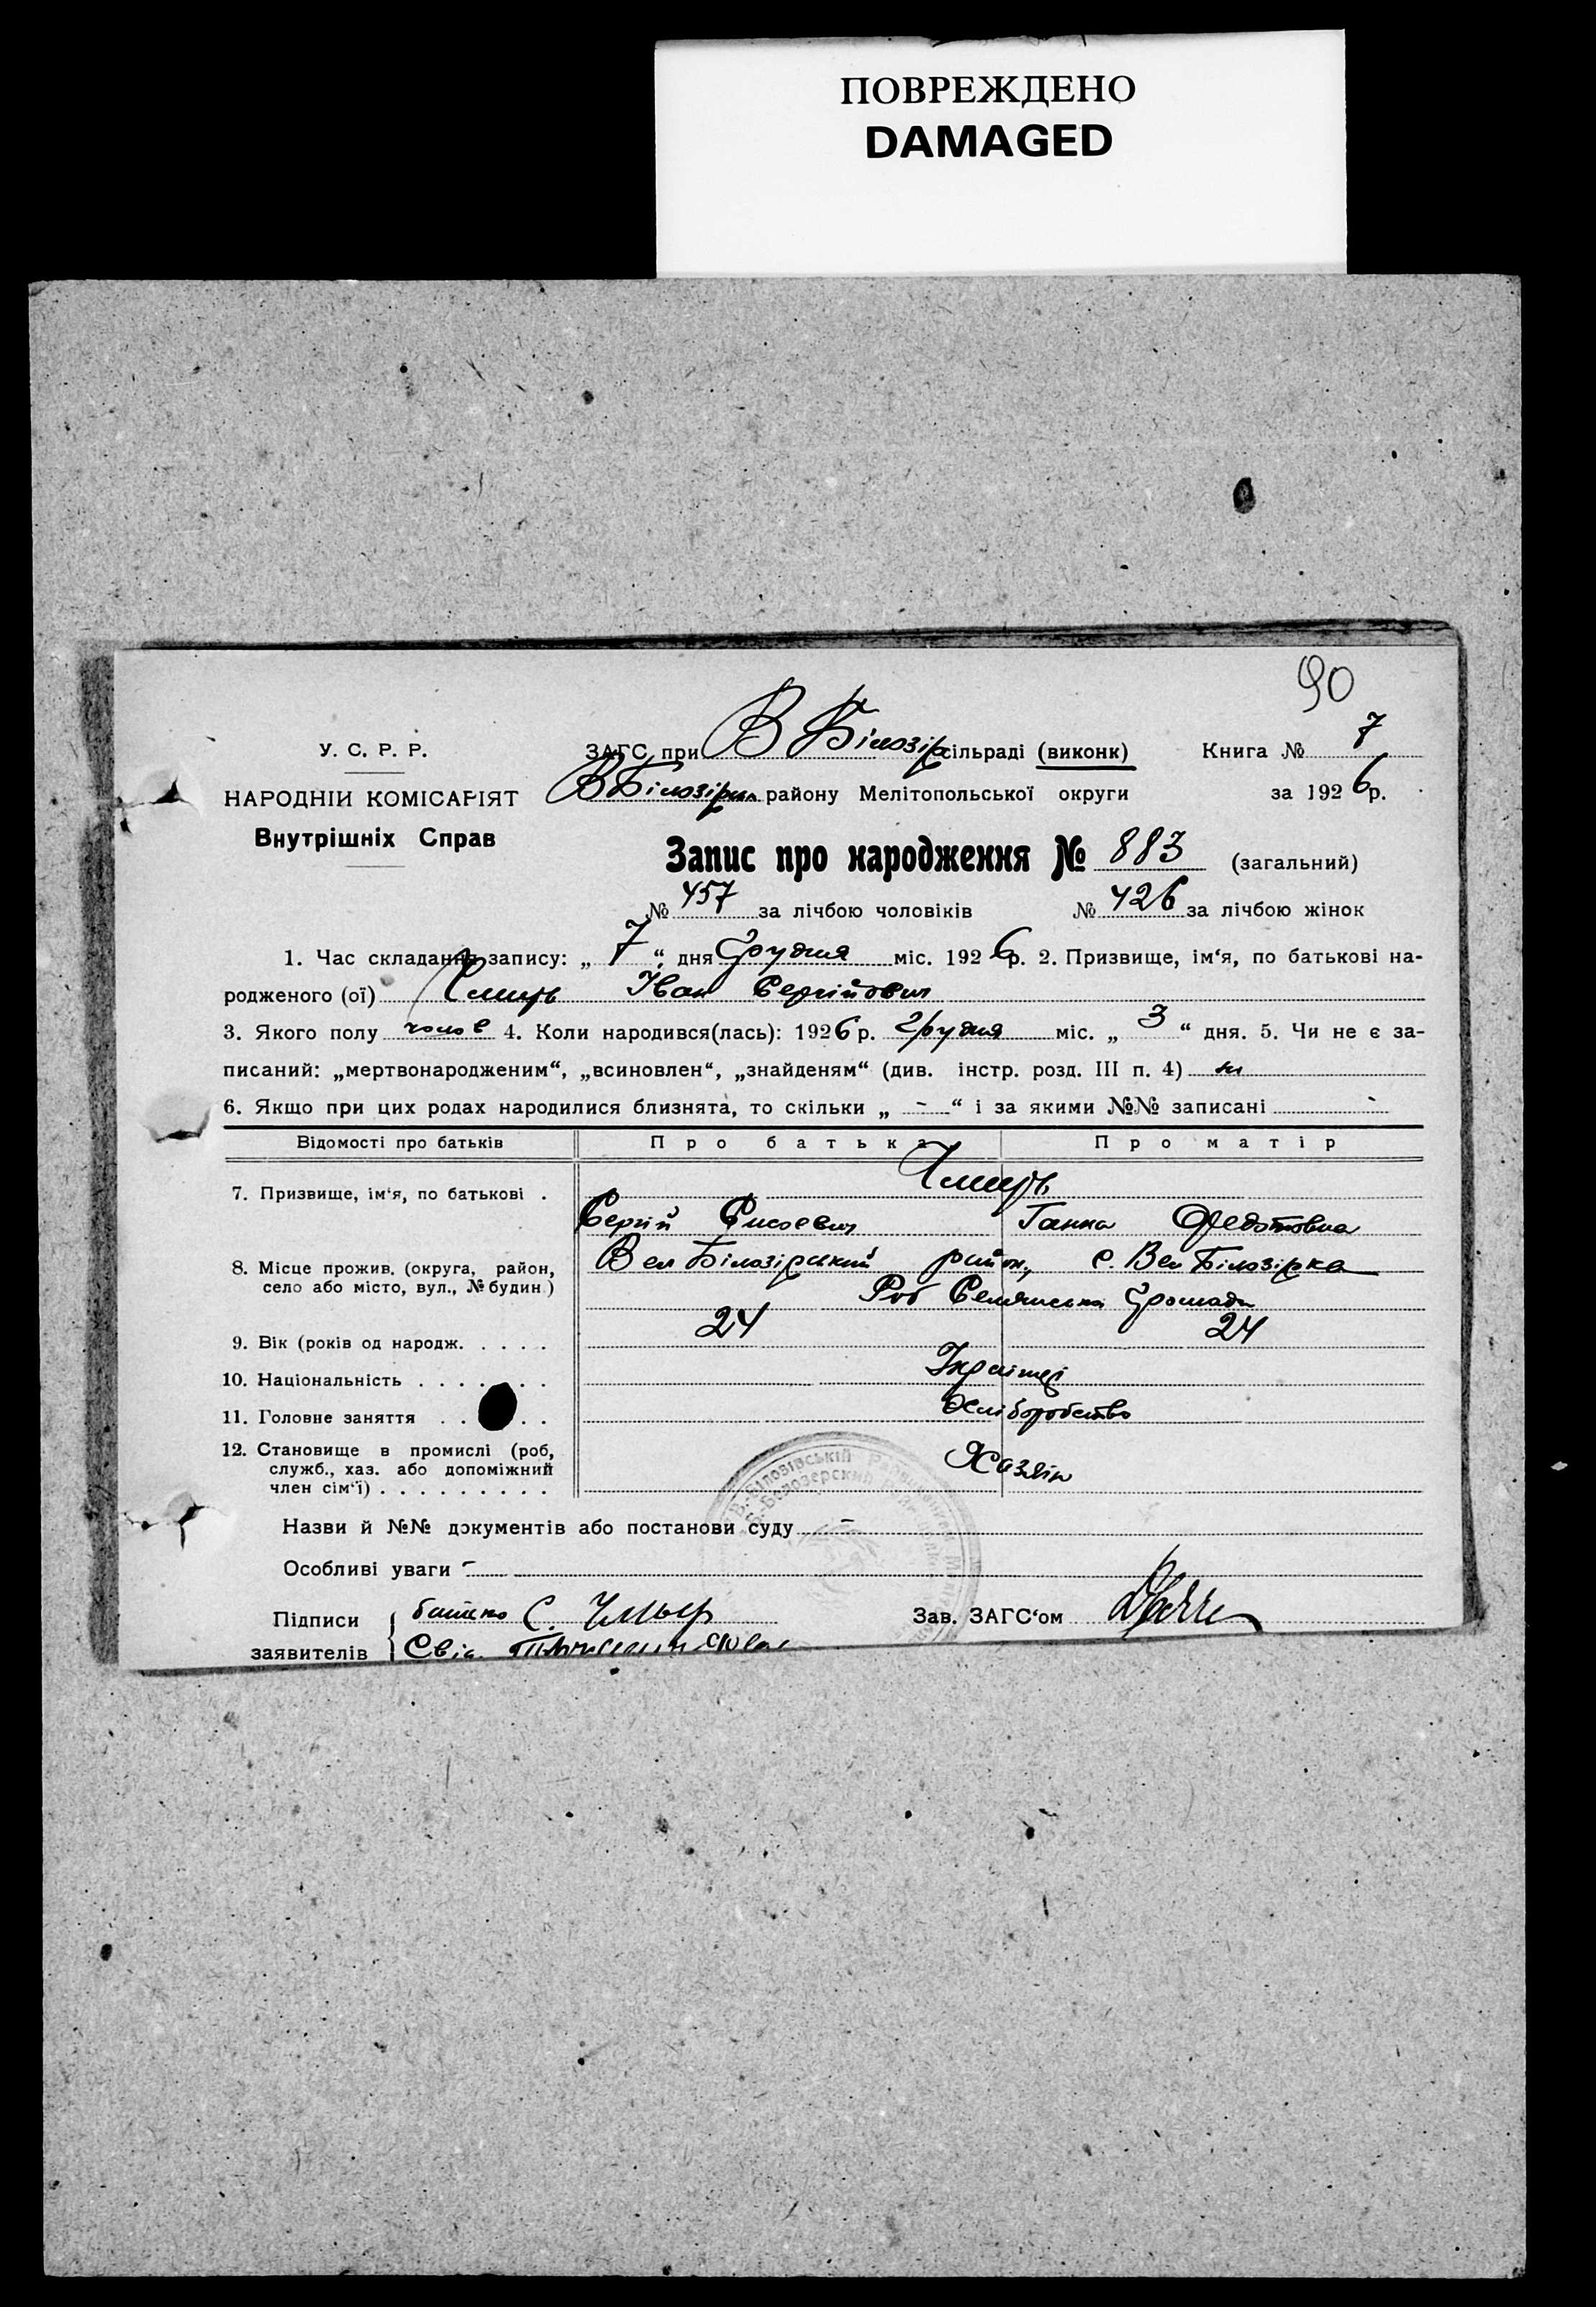 ПОВРЕЖДЕНО
DAMAGED
90
У. С. Р. Р.
ЗАГС при В Білозір сільраді (виконк)
Книга № 7
НАРОДНІЙ КОМІСАРІЯТ
В Білозірк району Мелітопольської округи
за 1926 р.
Внутрішніх Справ
Запис про народження № 883 (загальний)
№ 457 за лічбою чоловіків № 426 за лічбою жінок
1. Час складання запису: „ 7 “ дня Грудня міс. 1926 р. 2. Призвище, ім‘я, по батькові на-
родженого (ої) Чмирь Іван Сергійович
3. Якого полу чолов 4. Коли народився(лась): 1926 р. Грудня міс. „ 3 “ дня. 5. Чи не є за-
писаний: „мертвонародженим“, „всиновлен“, „знайденям“ (див. інстр. розд. III п. 4) ні
6. Якщо при цих родах народилися близнята, то скільки „ - “ і за якими №№ записані -
Відомості про батьків Про батька Про матір
7. Призвище, ім‘я, по батькові . Чмирь
Сергій Ганна Федотовна
8. Місце прожив. (округа, район, Вел Білозірський район, с. Вел Білозірка
село або місто, вул., № будин.)
Громада
9. Вік (років од народж. . . . . 24 24
10. Національність . . . . . . . Українці
11. Головне заняття . . . . Хліборобство
12. Становище в промислі (роб, Хазяїн
служб., хаз. або допоміжний
член сім‘ї) . . . . . . . . .
Назви й №№ документів або постанови суду -
Особливі уваги -
Підписи батько С. Чмырь Зав. ЗАГС‘ом
заявителів Свід.